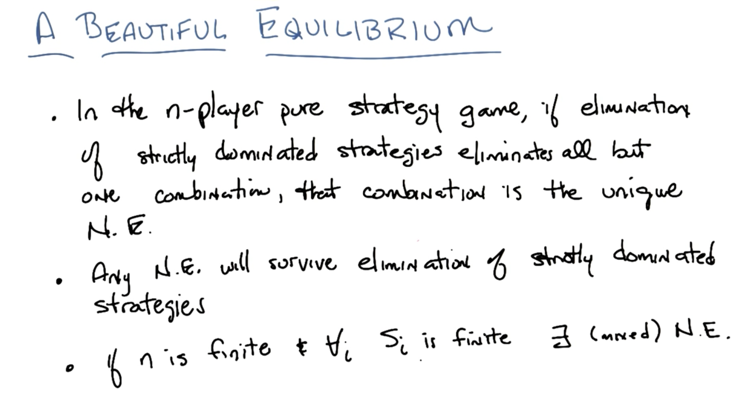 A BEAUTIFUL EQUILIBRIUM
. In the n-player pure strategy game, if elimination
of strictly dominated strategies eliminates all but
one combination, that combination is the unique
N.E.
. Any N.E. will survive elimination of strictly dominated
strategies
. if n is finite & ∀i Si is finite ∃ (mixed) N.E.